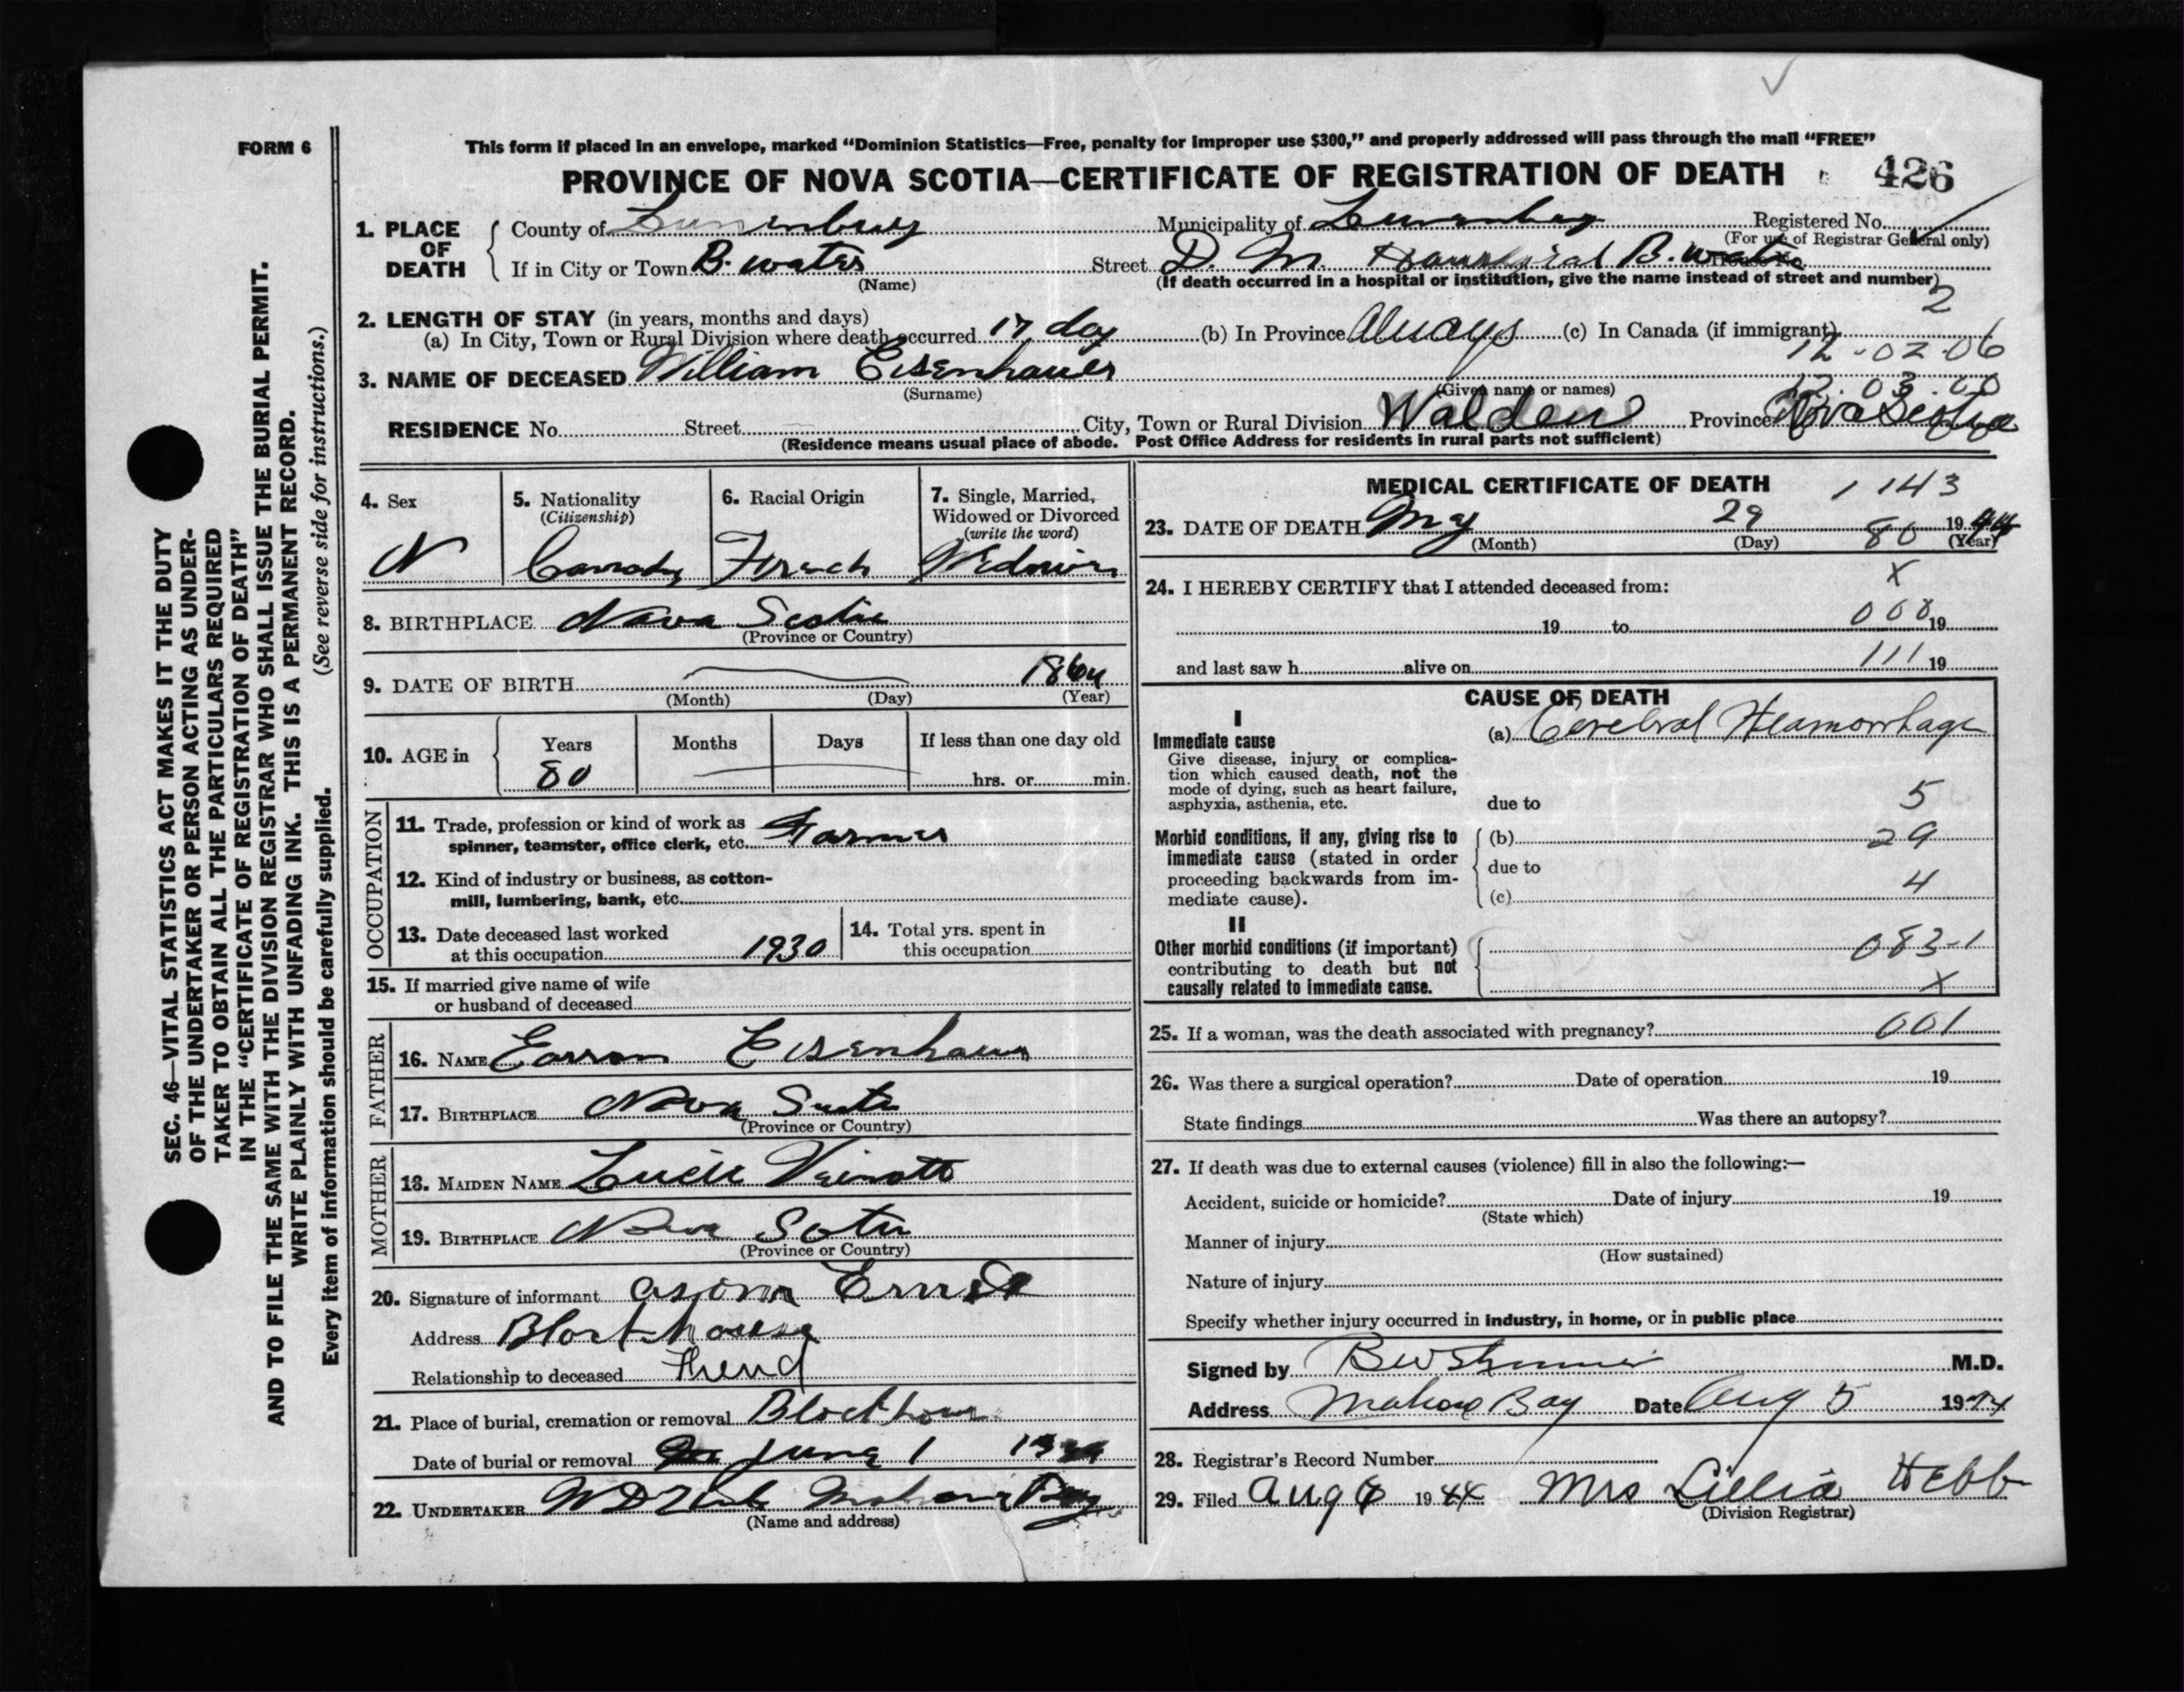 FORM 6
This form if placed in an envelope, marked “Dominion Statistics—Free, penalty for improper use $300,” and properly addressed will pass through the mail “FREE”
PROVINCE OF NOVA SCOTIA—CERTIFICATE OF REGISTRATION OF DEATH 426
1. PLACE OF DEATH
County of Lunenburg Municipality of Lunenburg Registered No.
(For use of Registrar General only)
If in City or Town B. water Street D. M. B. water House No.
(Name) (If death occurred in a hospital or institution, give the name instead of street and number)
2
2. LENGTH OF STAY (in years, months and days)
(a) In City, Town or Rural Division where death occurred 17 day (b) In Province Always (c) In Canada (if immigrant)
12-02-06
3. NAME OF DECEASED William Eisenhauer
(Surname) (Given name or names) 12.03.00
RESIDENCE No. Street City, Town or Rural Division Walden Province Nova Scotia
(Residence means usual place of abode. Post Office Address for residents in rural parts not sufficient)
4. Sex 5. Nationality 6. Racial Origin 7. Single, Married,
(Citizenship) Widowed or Divorced
(write the word)
French
8. BIRTHPLACE Nova Scotia
(Province or Country)
9. DATE OF BIRTH 1864
(Month) (Day) (Year)
10. AGE in Years Months Days If less than one day old
80 hrs. or min.
OCCUPATION
11. Trade, profession or kind of work as
spinner, teamster, office clerk, etc. Farmer
12. Kind of industry or business, as cotton-
mill, lumbering, bank, etc.
13. Date deceased last worked
at this occupation 1930
14. Total yrs. spent in
this occupation
15. If married give name of wife
or husband of deceased
FATHER
16. NAME Eisenhauer
17. BIRTHPLACE Nova Scotia
(Province or Country)
MOTHER
18. MAIDEN NAME Veinott
19. BIRTHPLACE Nova Scotia
(Province or Country)
20. Signature of informant Ernst
Address Blockhouse
Relationship to deceased Friend
21. Place of burial, cremation or removal Blockhouse
Date of burial or removal June 1
22. UNDERTAKER Mahone Bay
(Name and address)
MEDICAL CERTIFICATE OF DEATH 1143
23. DATE OF DEATH May 29 80 1944
(Month) (Day) (Year)
24. I HEREBY CERTIFY that I attended deceased from: X
19 to 008 19
and last saw h alive on 111 19
CAUSE OF DEATH
I
Immediate cause
Give disease, injury or complica-
tion which caused death, not the
mode of dying, such as heart failure,
asphyxia, asthenia, etc.
(a) Cerebral Heamorrhage
due to 5
Morbid conditions, if any, giving rise to
immediate cause (stated in order
proceeding backwards from im-
mediate cause).
(b) 29
due to 4
(c)
II
Other morbid conditions (if important)
contributing to death but not
causally related to immediate cause.
083-1
X
25. If a woman, was the death associated with pregnancy? 001
26. Was there a surgical operation? Date of operation 19
State findings Was there an autopsy?
27. If death was due to external causes (violence) fill in also the following:—
Accident, suicide or homicide? Date of injury 19
(State which)
Manner of injury
(How sustained)
Nature of injury
Specify whether injury occurred in industry, in home, or in public place
Signed by M.D.
Address Mahone Bay Date Aug 5 1944
28. Registrar's Record Number
29. Filed Aug 1944 Mrs Lillia Hebb
(Division Registrar)
SEC. 46—VITAL STATISTICS ACT MAKES IT THE DUTY
OF THE UNDERTAKER OR PERSON ACTING AS UNDER-
TAKER TO OBTAIN ALL THE PARTICULARS REQUIRED
IN THE “CERTIFICATE OF REGISTRATION OF DEATH”
AND TO FILE THE SAME WITH THE DIVISION REGISTRAR WHO SHALL ISSUE THE BURIAL PERMIT.
WRITE PLAINLY WITH UNFADING INK. THIS IS A PERMANENT RECORD.
Every item of information should be carefully supplied. (See reverse side for instructions.)